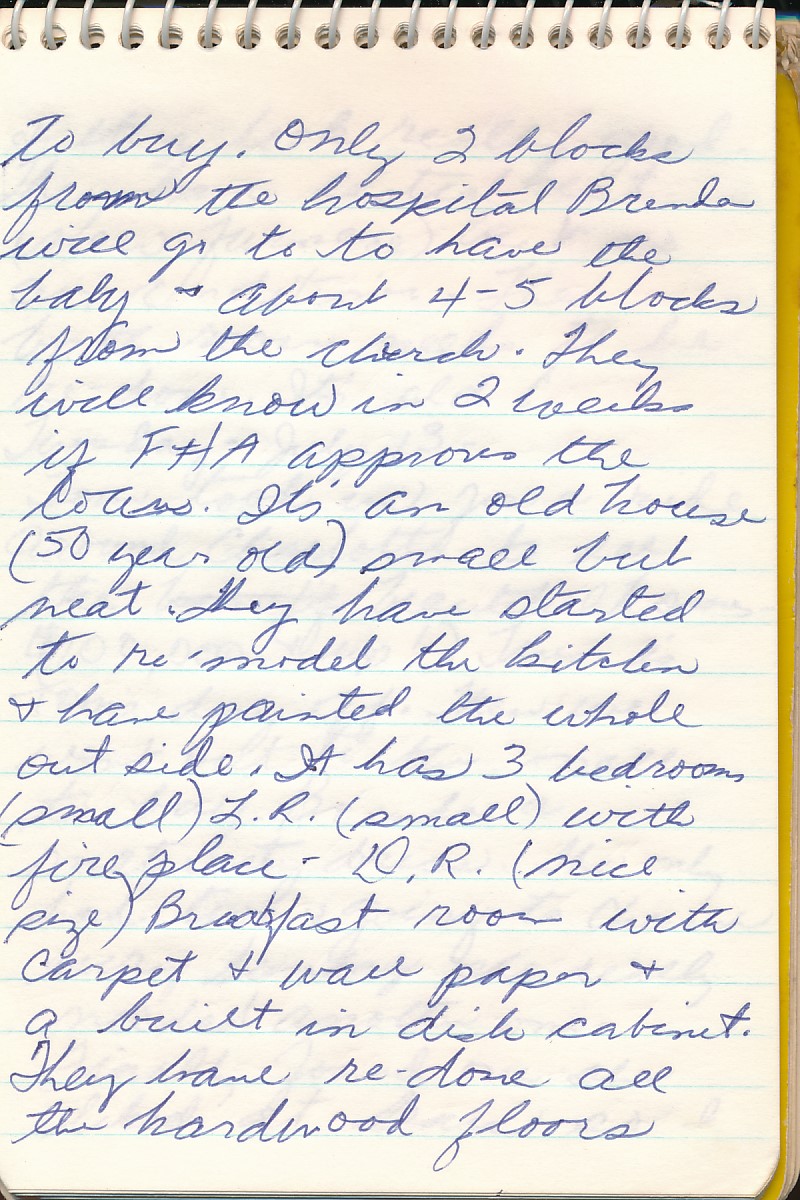 to buy. Only 2 blocks
from the hospital Brenda
will go to to have the
baby & about 4-5 blocks
from the church. They
will know in 2 weeks
if FHA approves the
loan. It's an old house
(50 year old) small but
neat. They have started
to re-model the kitchen
& have painted the whole
out side. It has 3 bedrooms
(small) L.R. (small) with
fire place - D.R. (nice
size) Breakfast room with
carpet & wall paper &
a built in dish cabinet.
They have re-done all
the hardwood floors